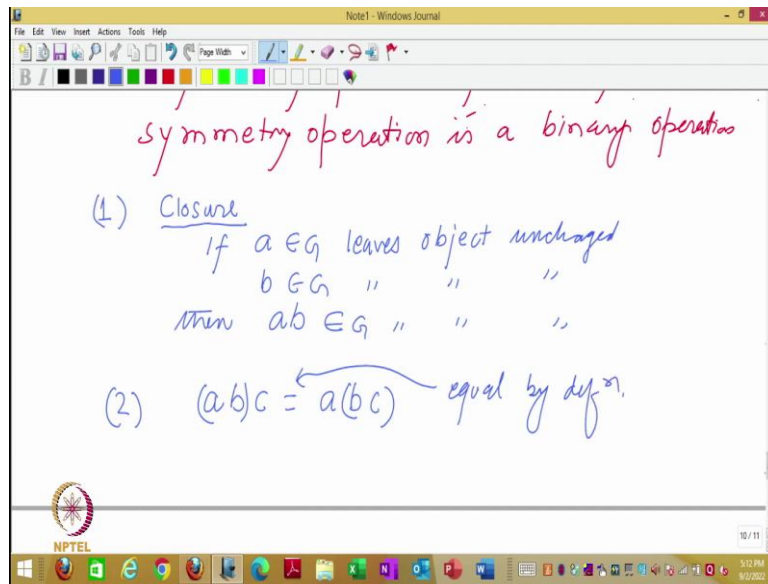 Note1 - Windows Journal
File Edit View Insert Actions Tools Help
Page Width
B I
symmetry operation is a binary operation
(1) Closure
If a ∈ G leaves object unchaged
b ∈ G " " "
then ab ∈ G " " "
(2) (ab)c = a(bc) equal by defn.
NPTEL
10 / 11
5:12 PM
9/2/2021